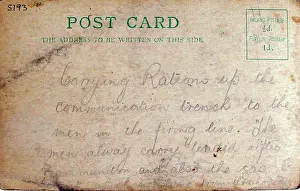 5193
POST CARD
THE ADDRESS TO BE WRITTEN ON THIS SIDE.
INLAND POSTAGE
½d.
Foreign Postage
1d.
Carrying Rations up the
communication trench to the
men in the firing line. The
men always carry loaded rifles
and also the gas